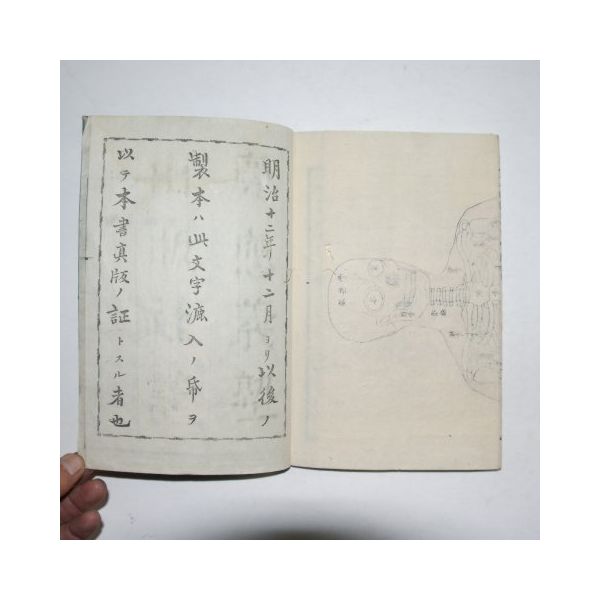 明治十二年ノ十二月ヨリ以後ノ
製本ハ此文字漉入ノ帋ヲ
以テ本書真版ノ証トスル者也